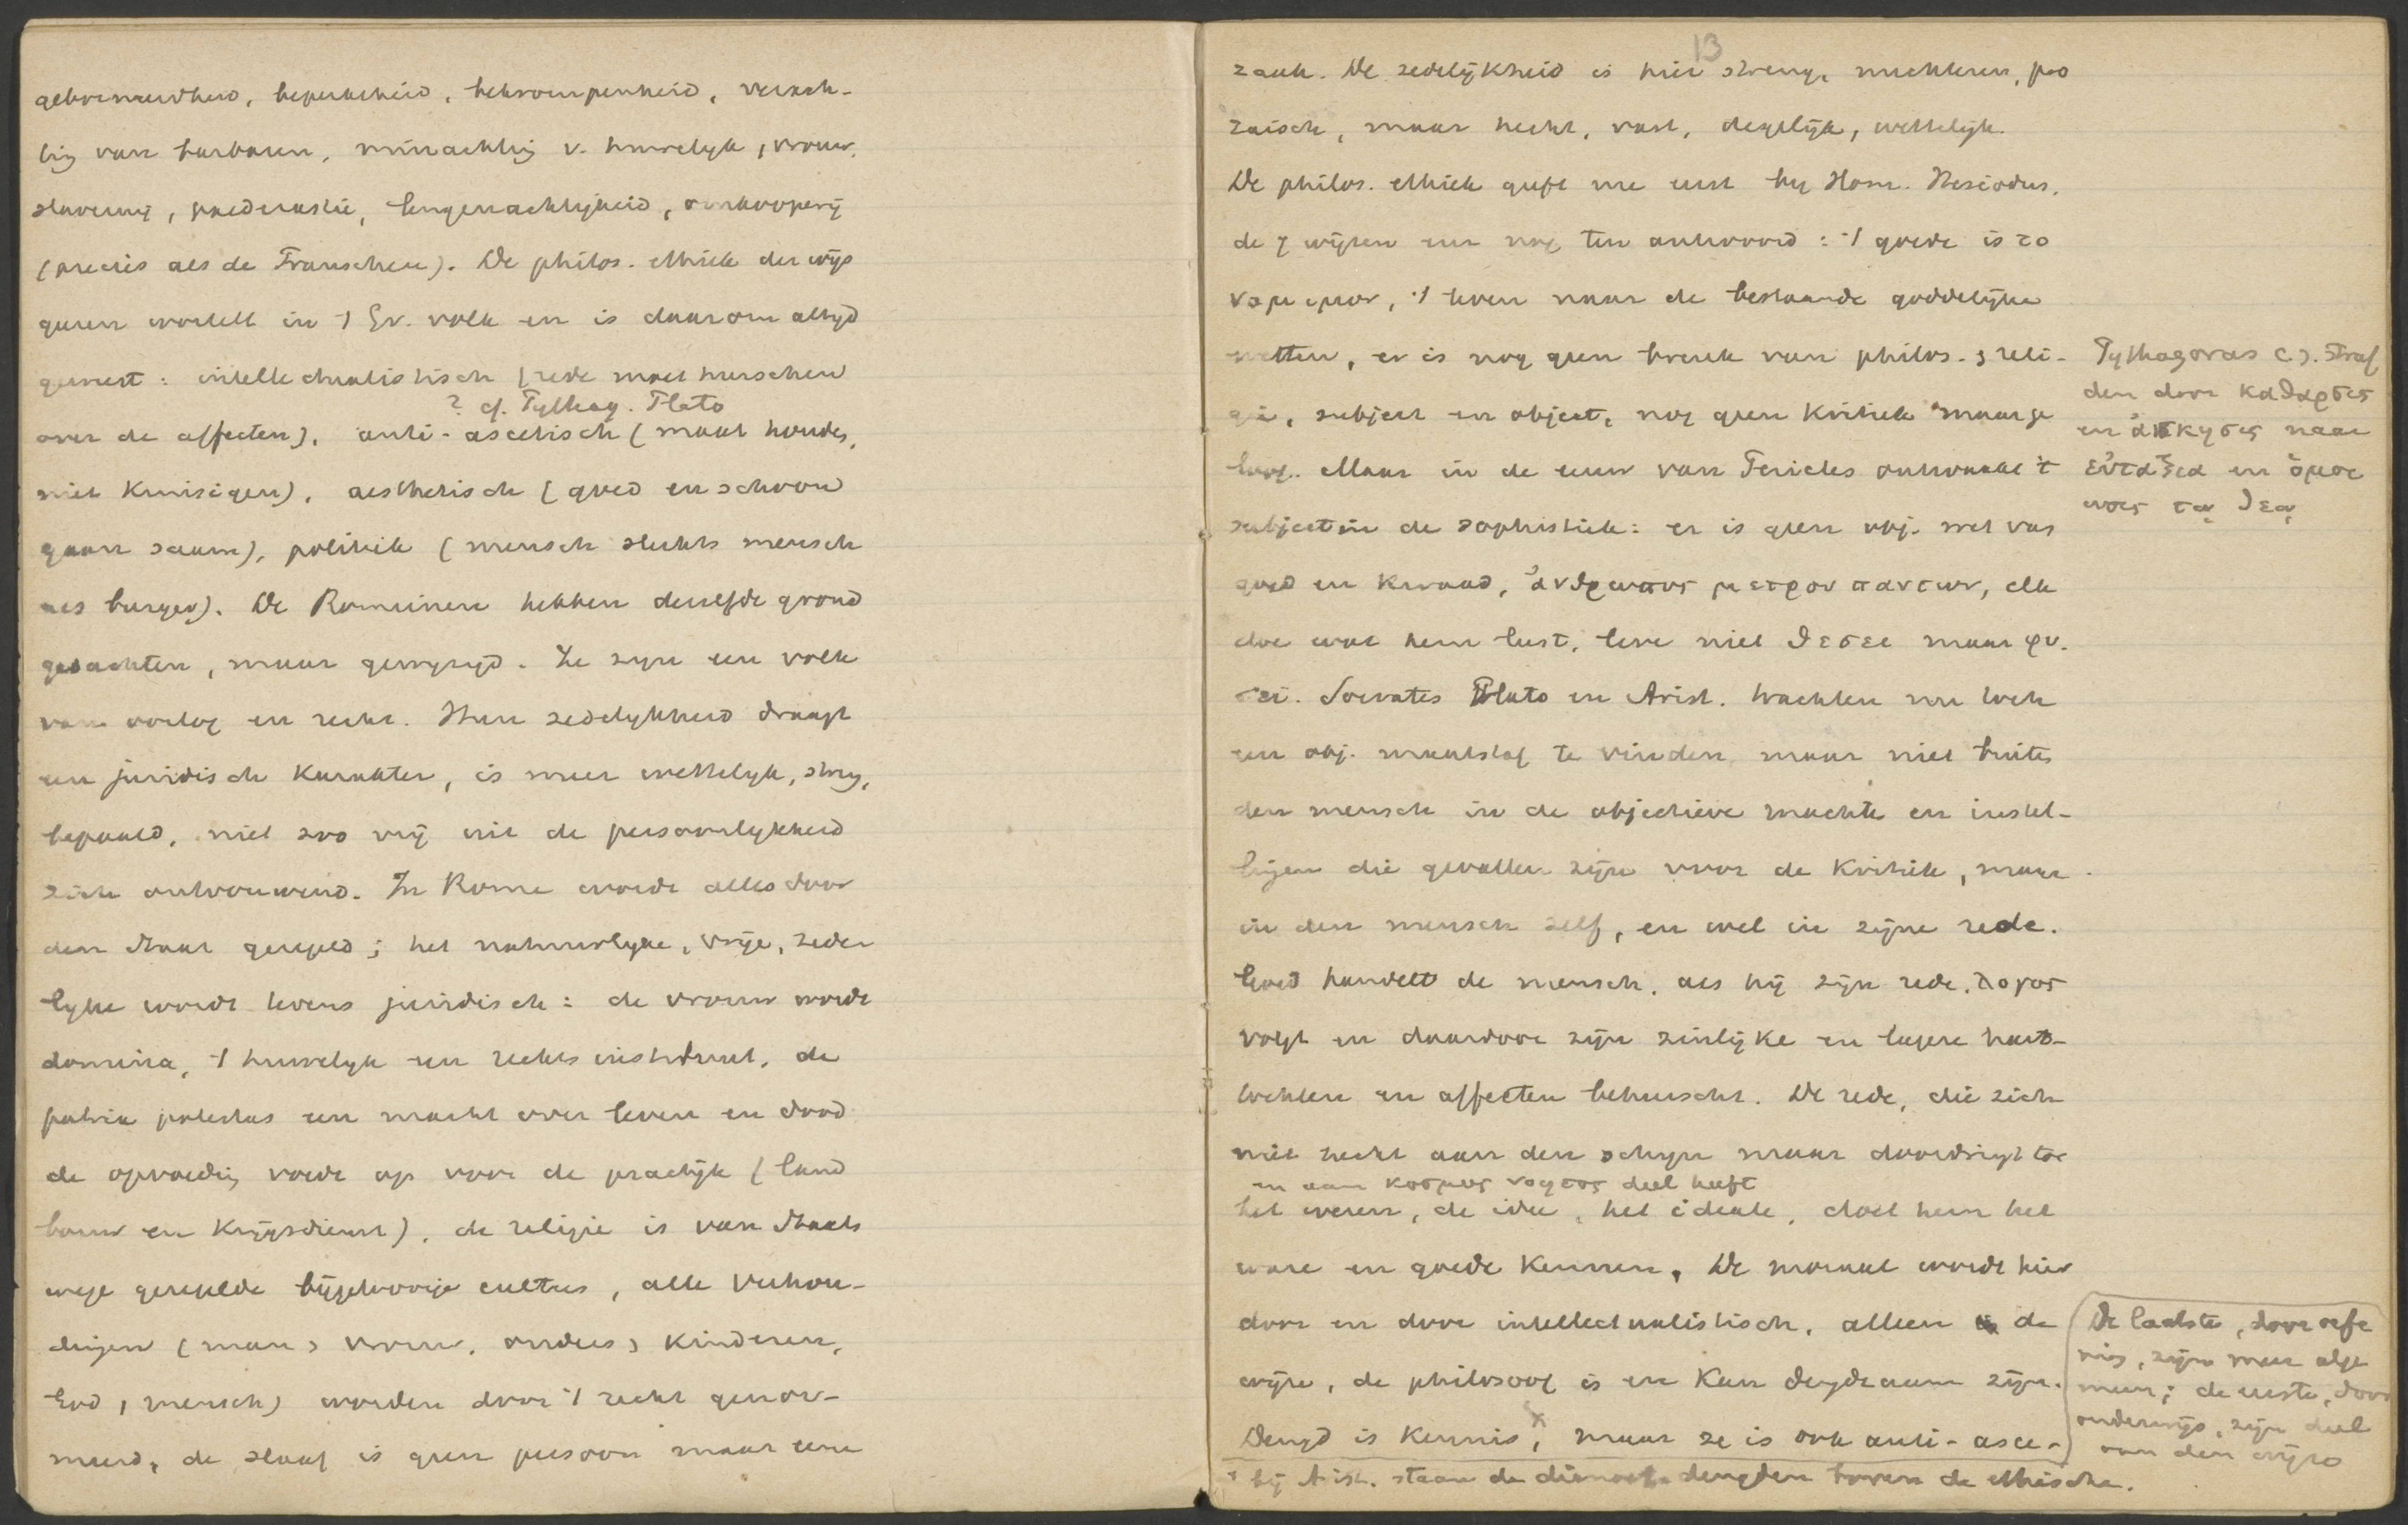 geborneerdheid, beperktheid, bekrompenheid, verach-
ting van barbaren, minachting v. huwelyk, vrouw,
slavernij, paederastie, leugenachtigheid, omkooperij
(precies als de Franschen). De philos. ethiek der wijs
geeren wortelt in 't Gr. volk en is daarom altyd
geweest: intellectualistisch (rede moet heerschen
? cf. Pythag. Plato
over de affecten), anti-ascetisch (maat houden,
niet kruisigen), aesthetisch (goed en schoon
gaan saam), politiek (mensch slechts mensch
als burger). De Romeinen hebben dezelfde grond
gedachten, maar gewyzigd. Ze zyn een volk
van oorlog en recht. Hun zedelykheid draagt
een juridisch karakter, is meer wettelyk, streng,
bepaald, niet zoo vrij uit de persoonlykheid
zich ontvouwend. In Rome wordt alles door
den Staat geregeld; het natuurlyke, vrije, zede
lyke wordt tevens juridisch: de vrouw wordt
domina, 't huwelyk een rechts instituut, de
patria potestas een macht over leven en dood
de opvoeding voedt op voor de practijk (land
bouw en krijgsdienst), de religie is van Staats
wege geregelde bijgeloovige cultus, alle verhou-
dingen (man > vrouw, ouders > kinderen,
God, mensch) worden door 't recht genor-
meerd, de slaaf is geen persoon maar eene
13
zaak. De zedelijkheid is hier streng, nuchteren, pro
zaisch, maar hecht, vast, degelijk, wettelijk.
De philos. ethiek geeft nu eerst by Hom. Hesiodus,
de 7 wijzen enz nog ten antwoord: 't goede is το
νομιμον, 't leven naar de bestaande goddelijke
wetten, er is nog geen breuk van philos. > reli-
gie, subject en object, nog geen kritiek
Maar in de eeuw van Pericles ontwaakt 't
subject in de sophistiek: er is geen obj. wet van
goed en kwaad, ἀνθρωπος μετρον παντων, elk
doe wat hem lust, leve niet θεσει maar φυ-
σει. Socrates Plato en Arist. trachten nu toch
een obj. maatstaf te vinden maar niet buiten
den mensch in de objectieve machten en instel-
lingen die gevallen zijn voor de kritiek, maar
in den mensch zelf, en wel in zijne rede.
Goed handelt de mensch, als hij zijn rede, λογος
volgt en daardoor zijn zinlijke en lagere harts-
tochten en affecten beheerscht. De rede, die zich
niet hecht aan den schyn maar doordringt tot
en aan κοσμος νοητος deel heeft
het wezen, de idee, het ideale, doet hem het
ware en goede kennen. De moraal wordt hier
door en door intellectualistisch, alleen de
wijze, de philosoof is en kan deugdzaam zijn.
Deugd is kennis, x maar ze is ook anti-asce-
x bij Arist. staan de dianoet. deugden boven de ethische.
Pythagoras c.s. Straf
den door καθαρσις
en ἀσκησις naar
εὐταξια en ὁμοι
ωσις τῳ θεῳ
De laatste, door oefe
ning, zijn meer alge
meen; de eerste, door
onderwijs, zijn deel
van den wijze